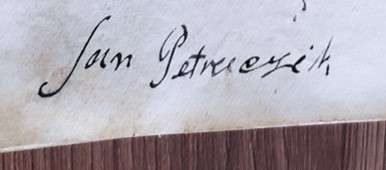 Jan Petruczik